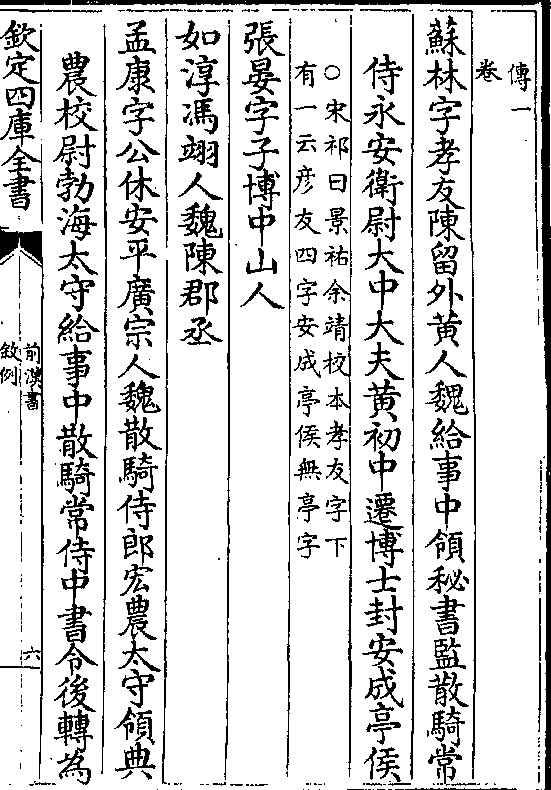 傳一
卷
蘇林字孝友陳留外黃人魏給事中領秘書監散騎常
侍永安衛尉大中大夫黃初中遷博士封安成亭侯
○宋祁曰景祐余靖校本孝友字下
有一云彦友四字安成亭侯無亭字
張晏字子博中山人
如淳馮翊人魏陳郡丞
孟康字公休安平廣宗人魏散騎侍郎宏農太守領典
農校尉勃海太守給事中散騎常侍中書令後轉為
欽定四庫全書
前漢書
敘例
六